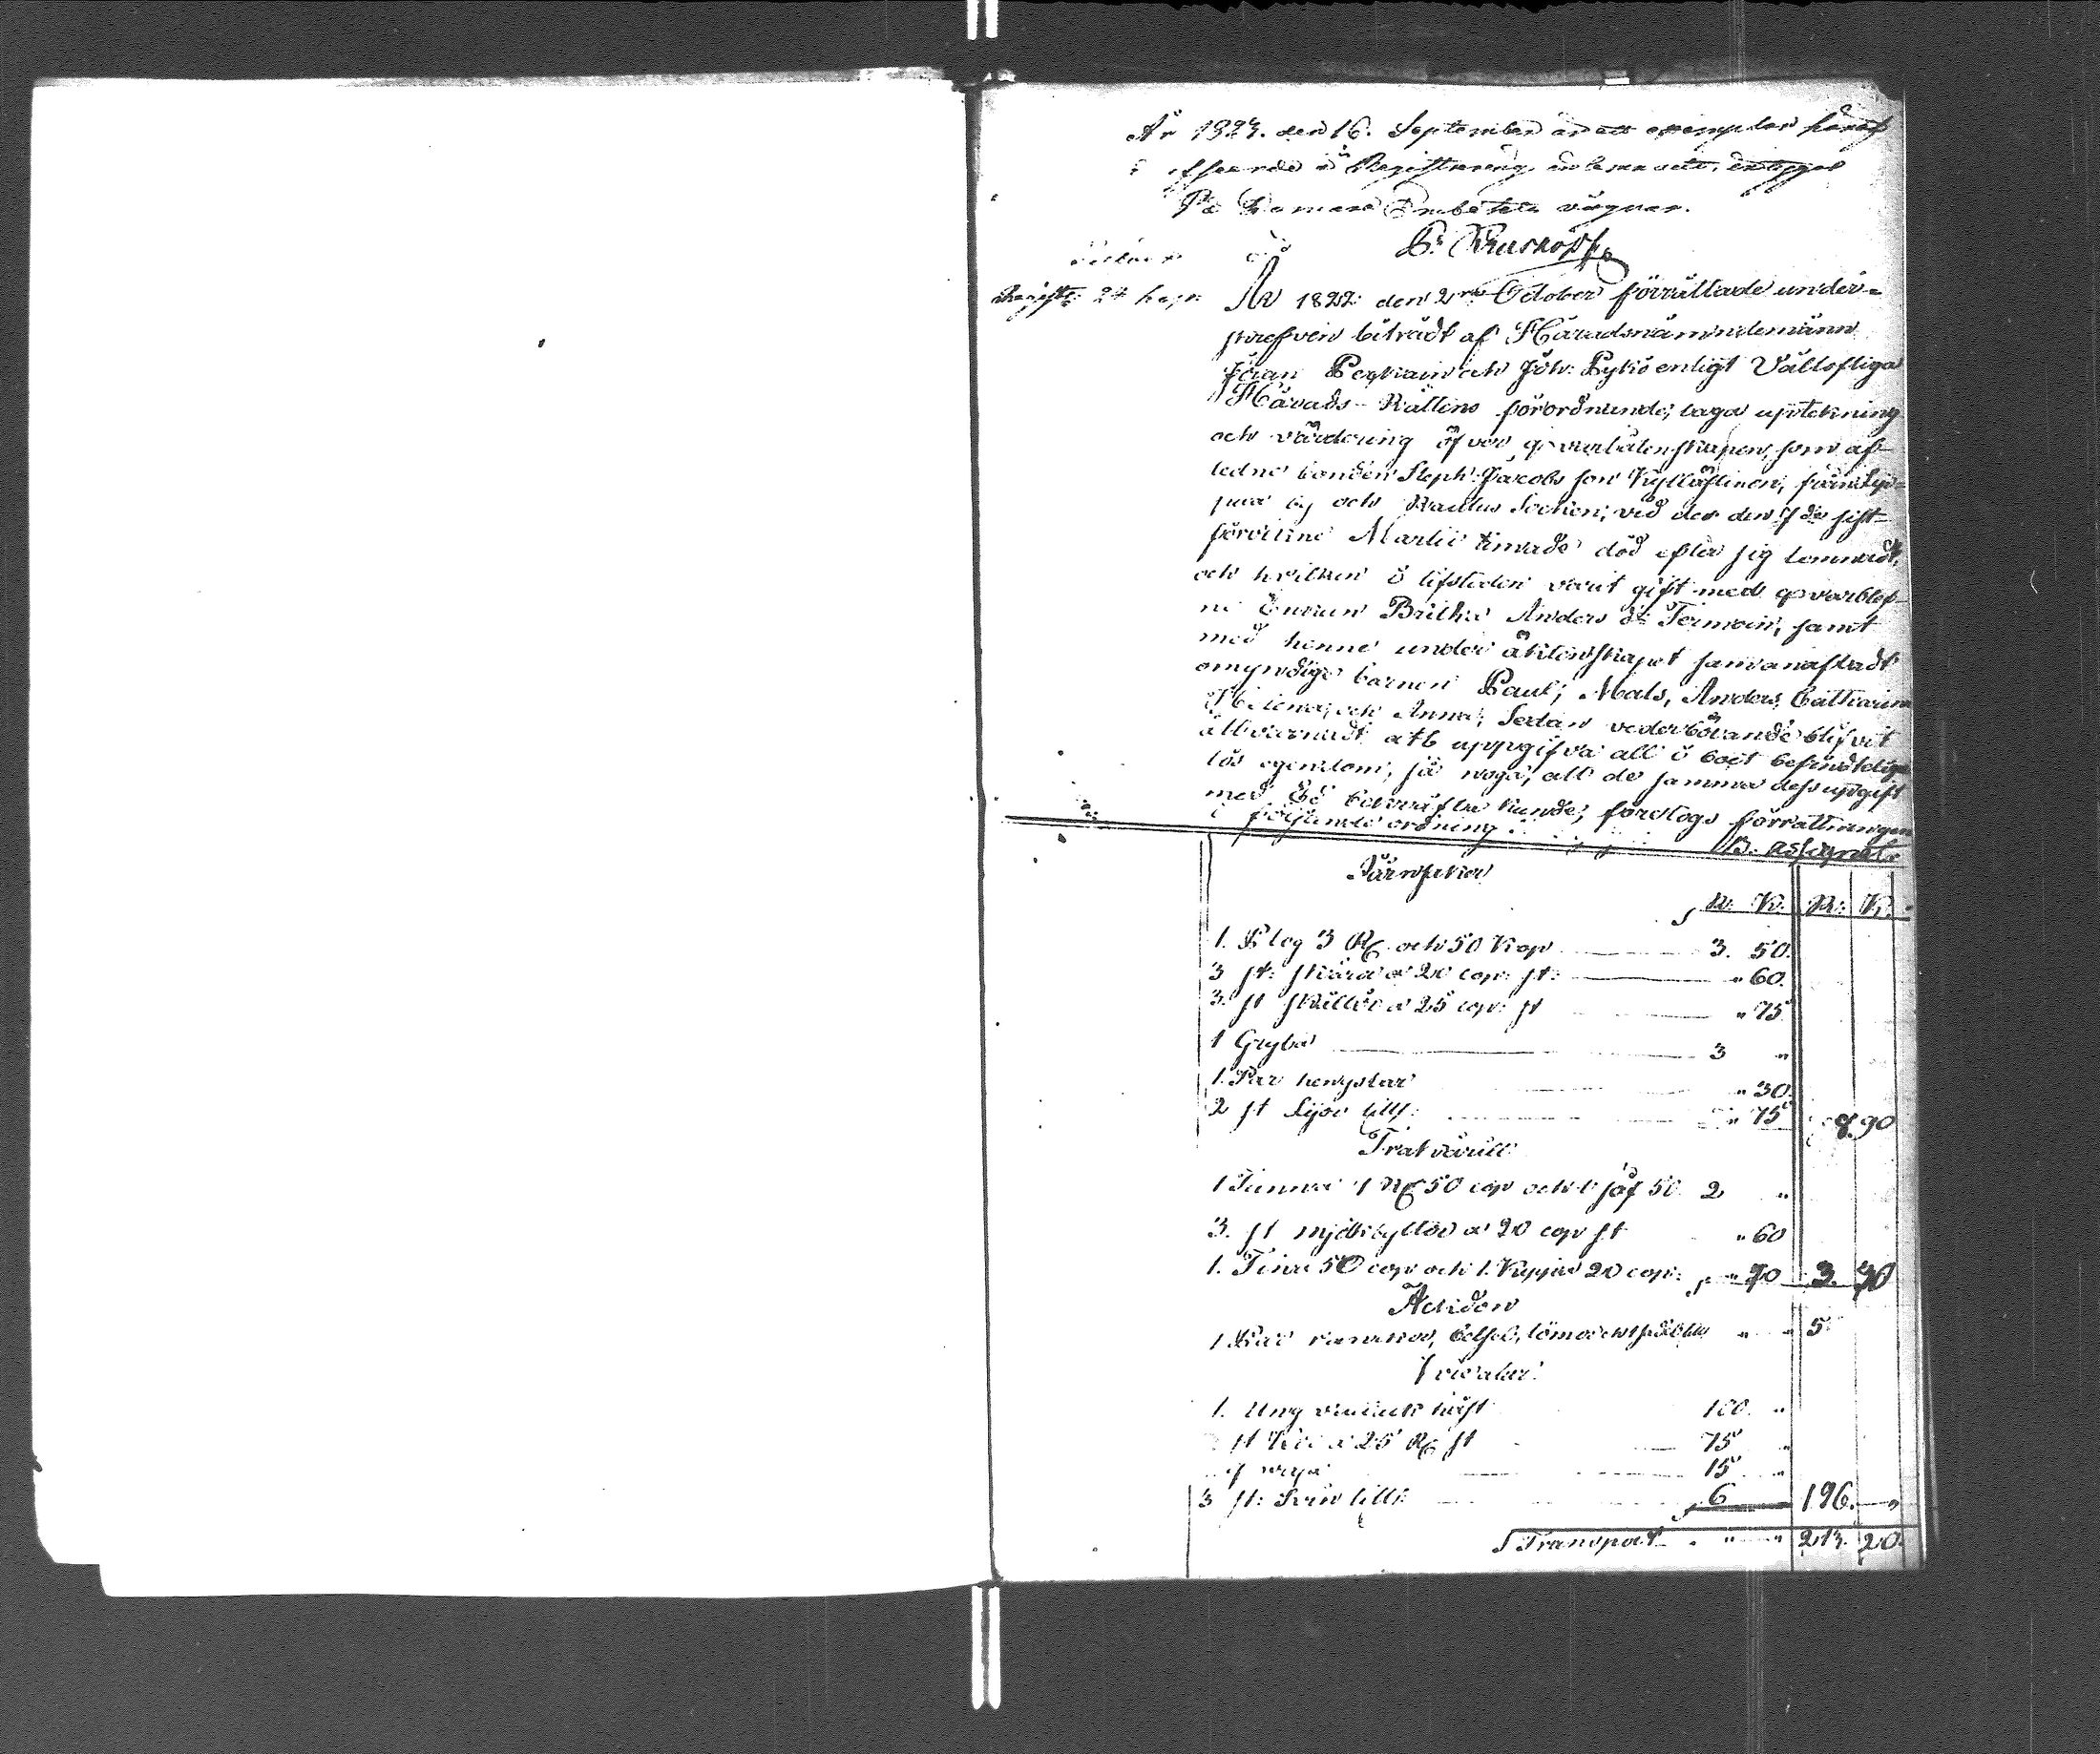 År 1823. den 16. September är ett exemplar häraf
afseende å Registrering inlemnadt,
På Domare Embetets vägnar.
B. Kruskopf
År 1822 den 2dra October förrättade under-
skrefven biträdt af Häradsnämndemänn
Jöran Pegkain och Joh: Pykö enligt Vällofliga
Härads-Rättens förordnande, laga upteckning
och värdering öfver qvarlåtenskapen, som af-
ledne bonden Steph: Jacobs son Kylläflinen, från
by och Rautus Sochen, vid des den 7de sist-
förvikne Martii timade död efter sig lemnadt,
och hvilken i lifstiden varit gift med qvarblef-
ne Enkan Britha Anders dr Termain, samt
med henne under äktenskapet sammanafladt
omyndige barnen Paul, Mats, Anders, Catharina
Helena, och Anna; Sedan vederbörande blifvit
allvarnadt att uppgifva all i boet befindtelige
lös egendom, så noga, att de samma dess uppgift
med Ed bekräfta kunde, företogs förrättningen
i följande ordning:
B. assignat:
Järnsaker
R: K: R: K:
1. Plog 3 R. och 50 Kop 3. 50.
3 st: skäror a 20 cop: st: " 60.
3. st skällor a 25 cop: st " 75
1 Gryta 3 "
1. Par hengslar " 30.
2 st Lijor tills: " 75 8. 90
Trätväril
1 Tunna 1 R 50 cop och 1 så 50 2 "
3. st mjölkbyttor a 20 cop st " 60
1. Tina 50 cop och 1. Kappa 20 cop: " 70 3. 30
Åckdon
1 Par rankor, betsel, " " 5
Kreatur
1. Ung vallack häst 100. "
st Kor a 25 R st 75 "
15 "
3 st: Svin tills: 6 196. "
Transport " " 213. 20.